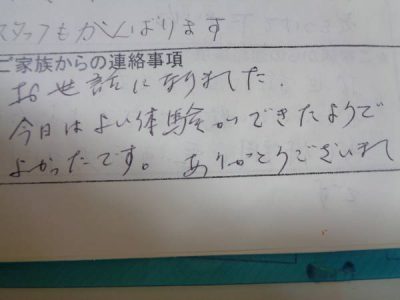 スタッフもがんばります
ご家族からの連絡事項
お世話になりました.
今日はよい体験ができたようで
よかったです。ありがとうございまし